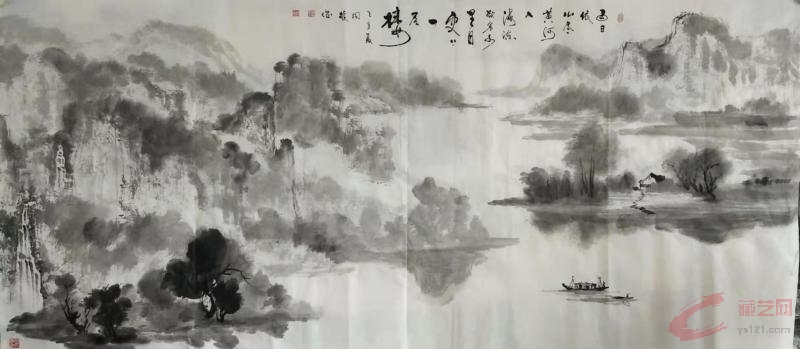 白日
依
山尽
黄河
入
海流
欲穷千
里目
更上
一
层
楼
藏艺网
ya121.com